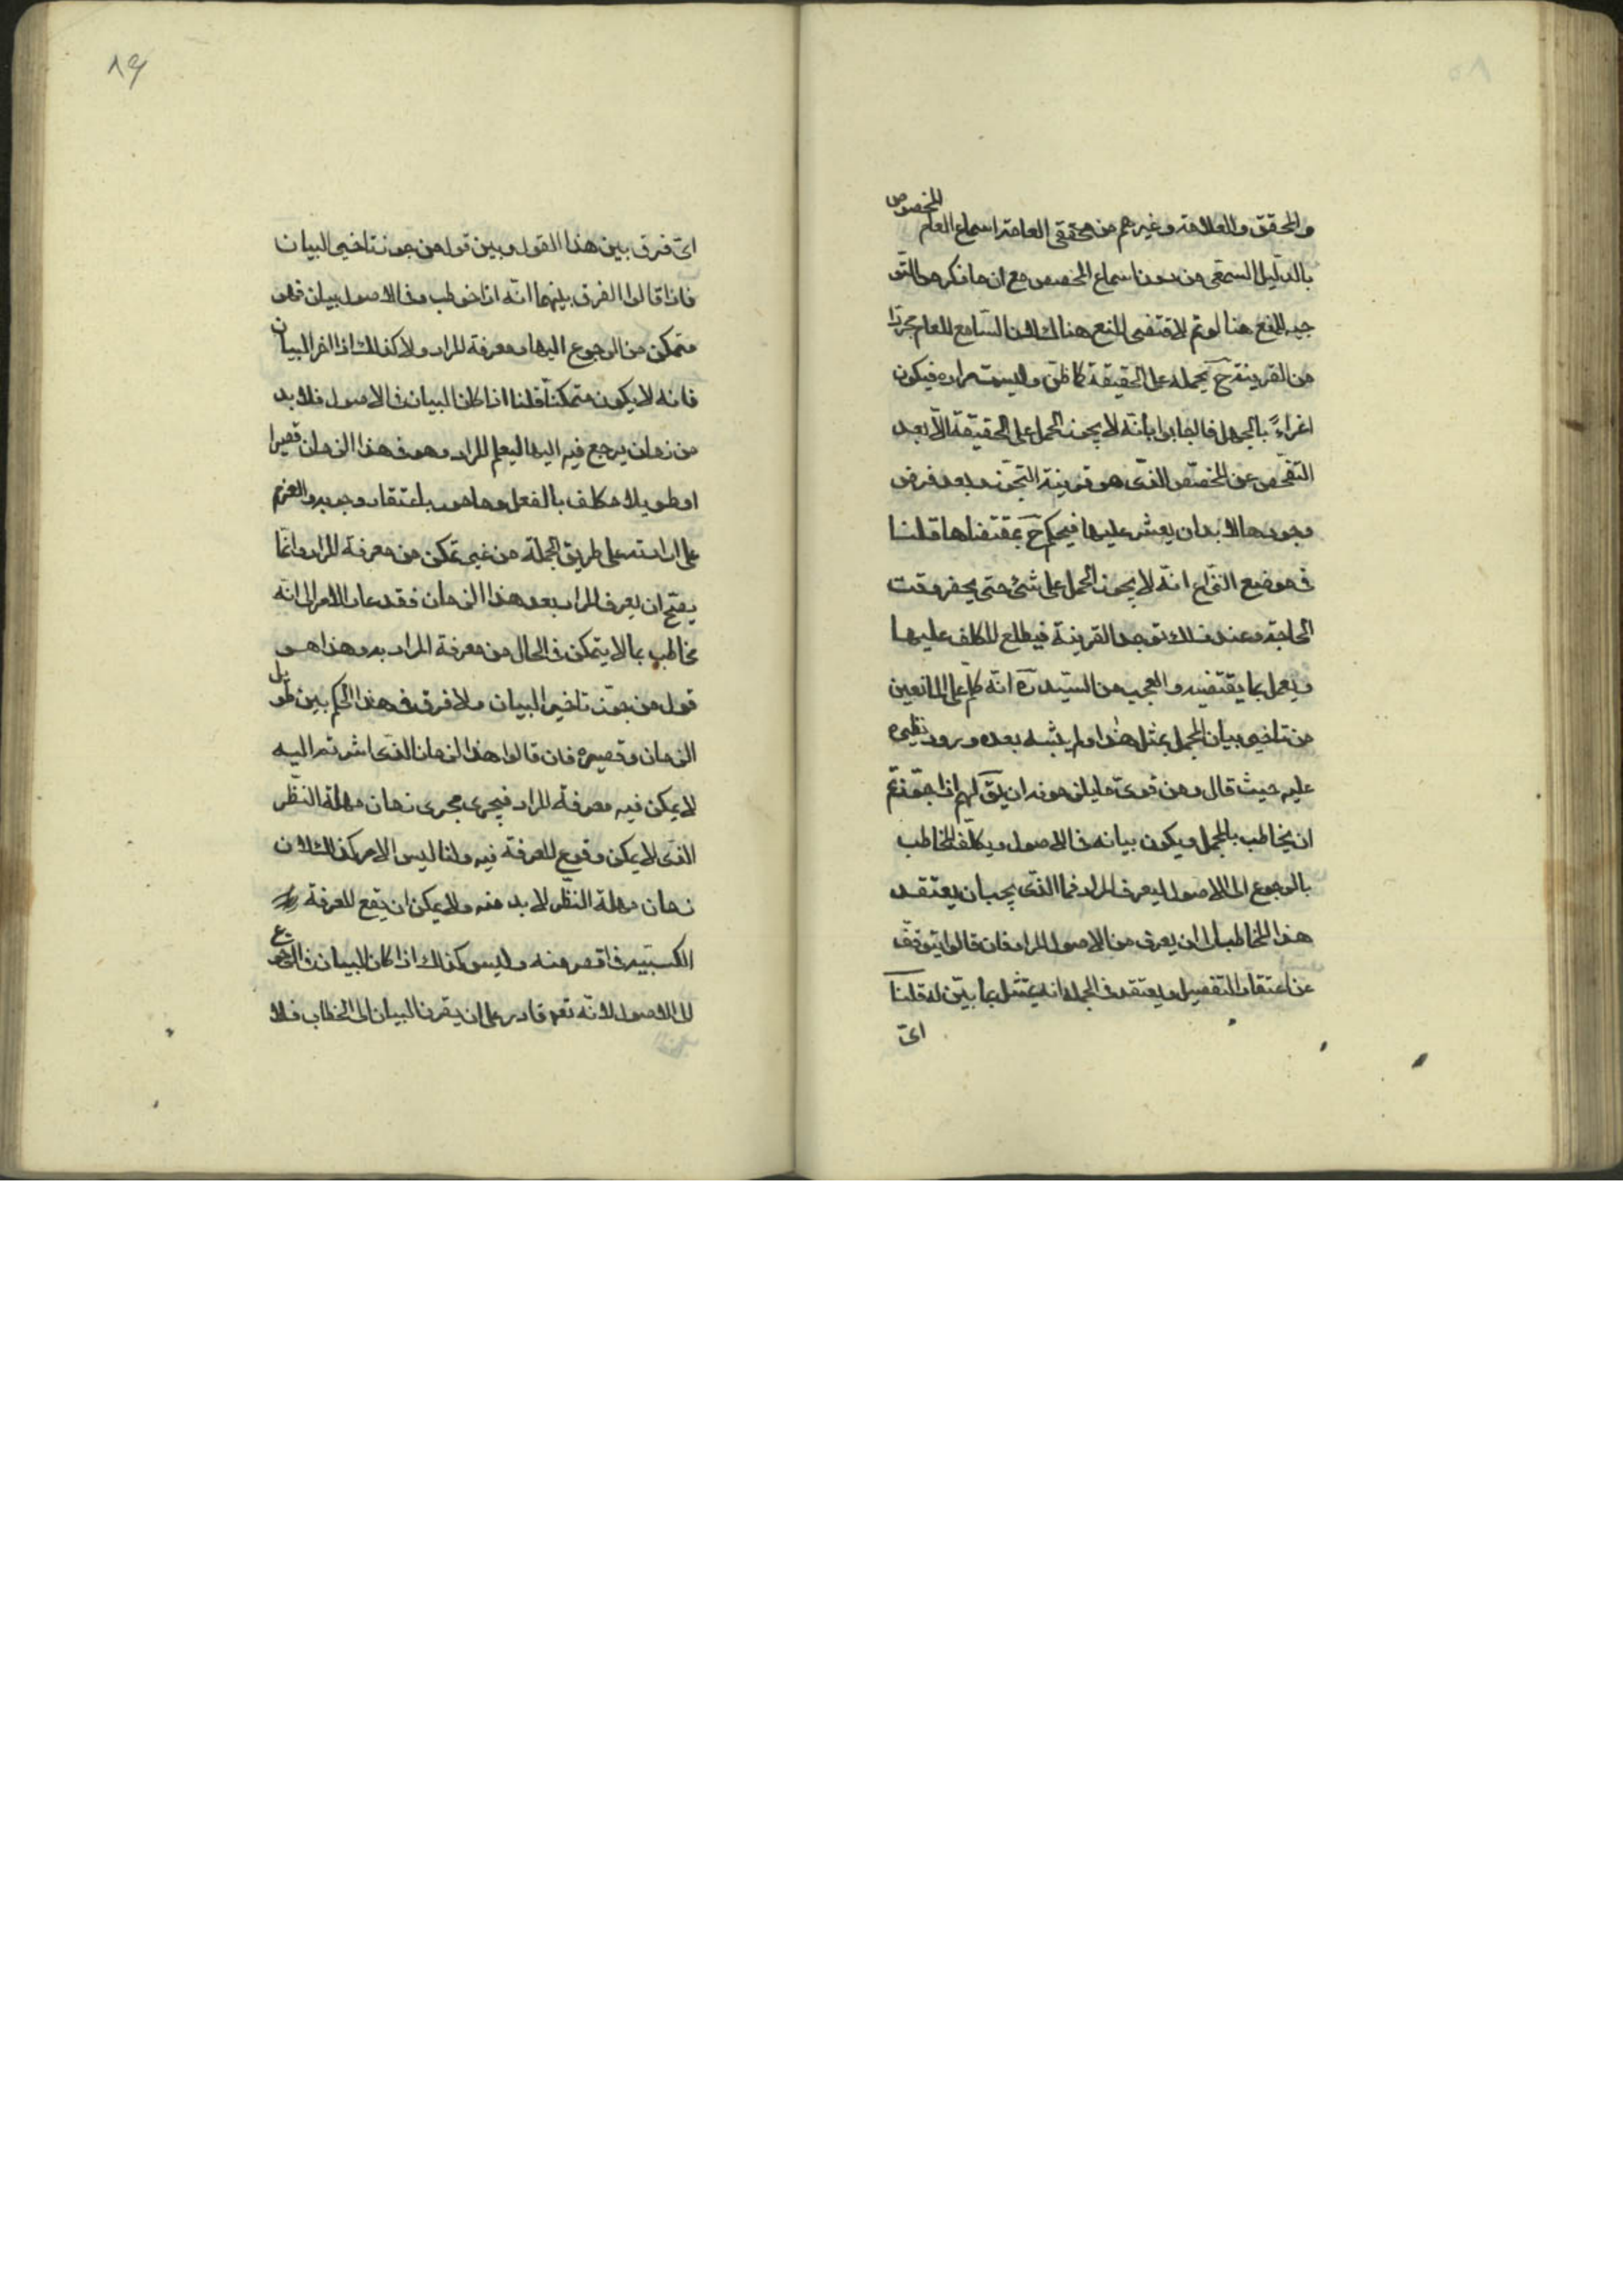 والمحقق والعلامة وغيرهم من محققى العامة اسماع العام المخصوص
بالدليل السمعى من دون اسماع المخصص مع ان ما ذكره من التو
جيه للمنع هنا لو تم لاقتضى المنع هناك لان السامع للعام مجردا
من القرينة ح يحمله على الحقيقة كما ظن وليست مراده فيكون
اغراءً بالجهل فالجواب بانه لا يجوز الحمل على الحقيقة الا بعد
التفحص عن المخصص الذى هو قرينة التجوز وبعد فرض
وجودها لا بد ان يعثر عليها فيحكم ح بمقتضاها قلنا
فى موضع النزاع انه لا يجوز الحمل على شئ حتى يحضر وقت
الحاجة وعند ذلك توجد القرينة فيطلع المكلف عليها
ويعمل بما يقتضيه والعجب من السيد ره انه تكلم على المانعين
من تاخير بيان المجمل بمثل هذا ولم يتنبه بعده ورود نظيره
عليه حيث قال ومن قوى ما يلزمونه ان يق لهم اذا جوزتم
ان يخاطب بالمجمل ويكون بيانه فى الاصول ويكلف المخاطب
بالرجوع الى الاصول ليعرف المراد فما الذى يجب ان يعتقد
هذا المخاطب الى ان يعرف من الاصول المراد فان قالوا يتوقف
عن اعتقاد التفصيل ويعتقد فى الجملة انه يمتثل بما بين له قلنا
اى
اى فرق بين هذا القول وبين قول من جوز تاخير البيان
فاذا قالوا الفرق بينهما انه اذا خوطب وفى الاصول بيان فهو
متمكن من الرجوع اليها ومعرفة المراد ولا كذلك اذا اخر البيان
فانه لا يكون متمكنا قلنا اذا كان البيان فى الاصول فلا بد
من زمان يرجع فيه اليها ليعلم المراد وهو فى هذا الزمان قصيرا
او طويلا مكلف بالفعل ومامور باعتقاد وجوبه والعزم
على ادائه على طريق الجملة من غير تمكن من معرفة المراد وانما
يصح ان يعرف المراد بعد هذا الزمان فقد عاد الامر الى انه
يخاطب بما لا يتمكن فى الحال من معرفة المراد به وهذا هو
قول من جوز تاخير البيان ولا فرق فى هذا الحكم بين طويل
الزمان وقصيره فان قالوا هذا الزمان الذى اشرتم اليه
لا يمكن فيه معرفة المراد فيجرى مجرى زمان مهلة النظر
الذى لا يمكن وقوع المعرفة فيه قلنا ليس الامر كذلك لان
زمان مهلة النظر لا بد منه ولا يمكن ان يقع المعرفة
الكسبية فى اقصر منه وليس كذلك اذا كان البيان فى الرجوع
الى الاصول لانه تعم قادر على ان يقرن البيان الى الخطاب فلا